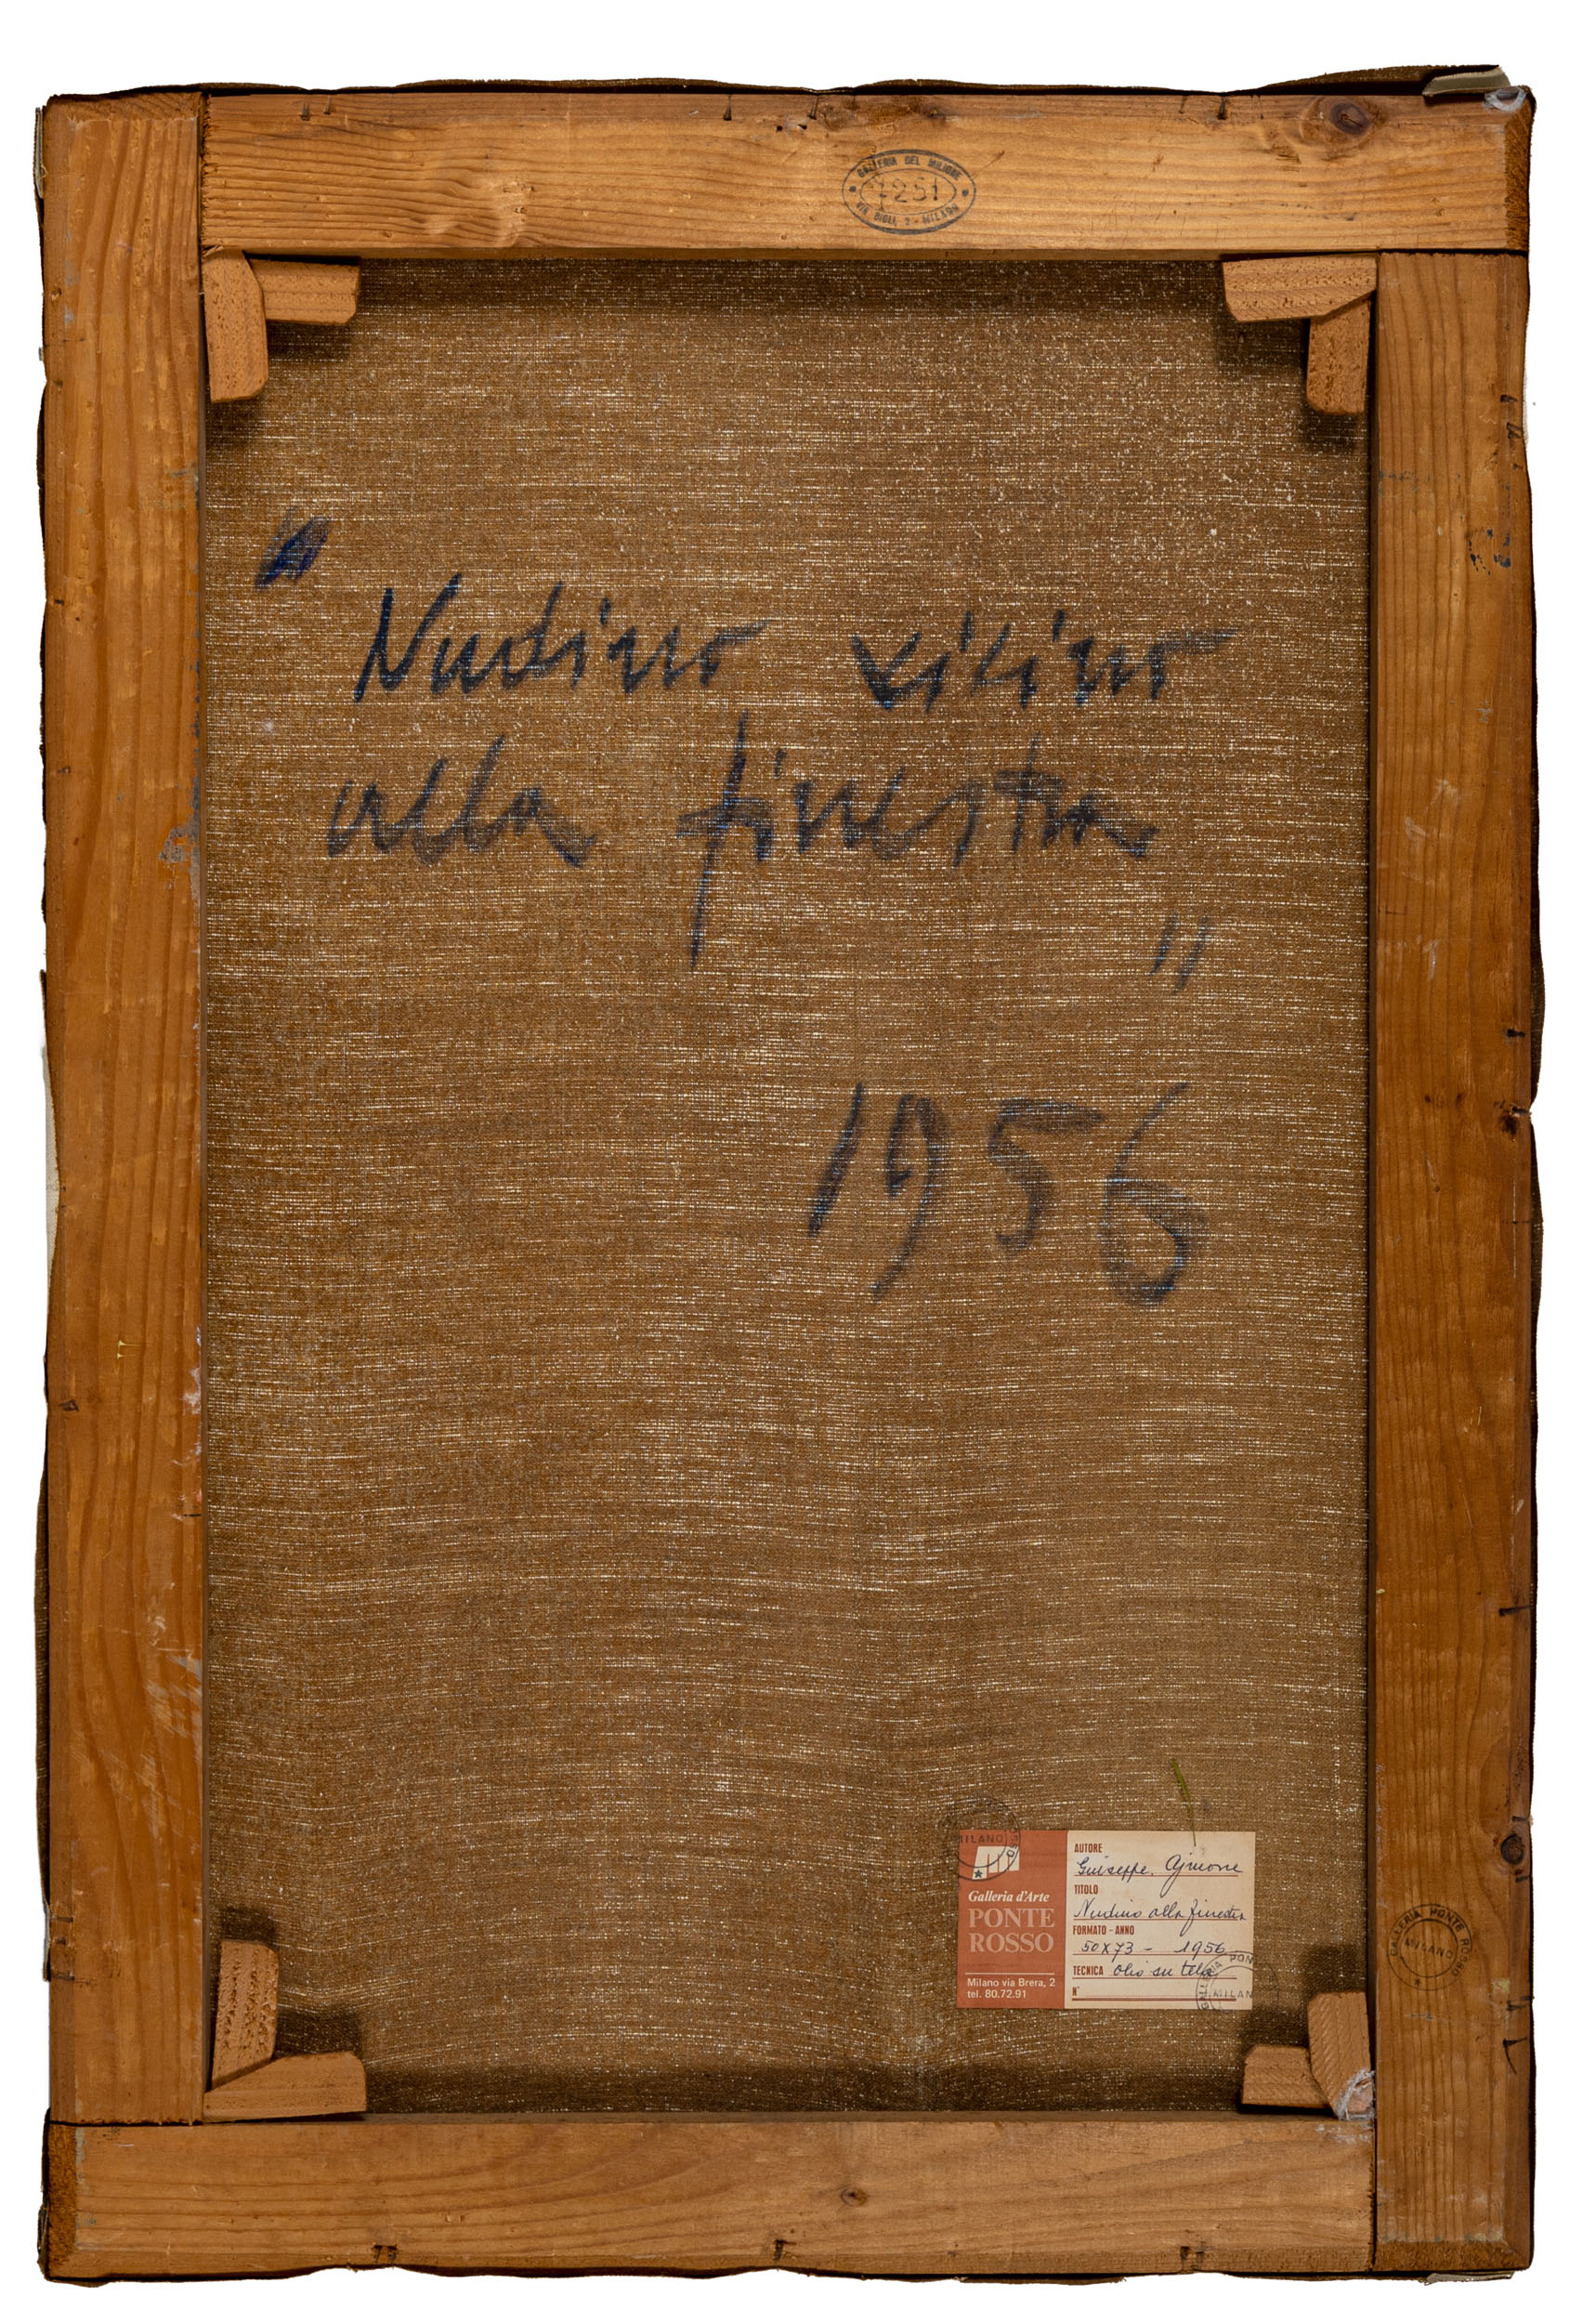 GALLERIA DEL MILIONE
7251
VIA BIGLI 2 - MILANO
" Nudino
alla finestra
"
1956
MILANO
Galleria d'Arte
PONTE
ROSSO
Milano via Brera, 2
tel. 80.72.91
AUTORE
Guiseppe Ajmone
TITOLO
Nudino alla finestra
FORMATO - ANNO
50x73 - 1956
TECNICA olio su tela
N°
GALLERIA PON
MILAN
GALLERIA PONTE ROSSO
MILANO